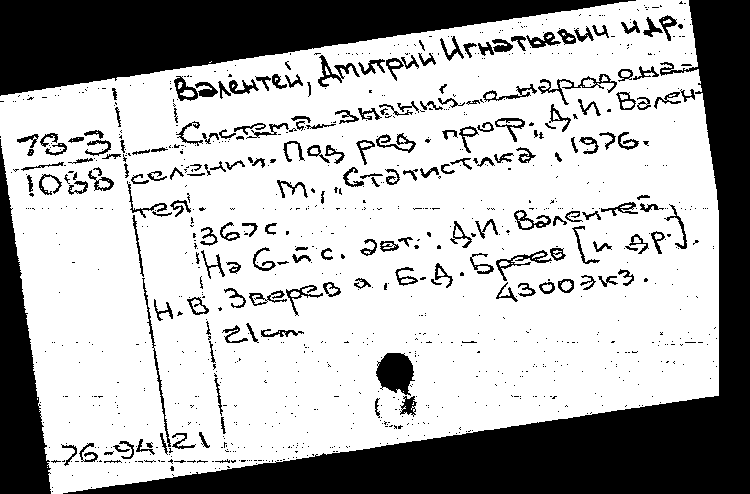 Валентей, Дмитрий Игнатьевич и др.
78-3
1088
Система знаний о народона-
селении. Под ред. проф. Д.И. Вален-
тея. М., „Статистика", 1976.
367 с.
На 6-й с. авт.: Д.И. Валентей,
Н.В. Зверева, Б.Д. Бреев [и др.].
21 cm 4300 экз.
76-94121